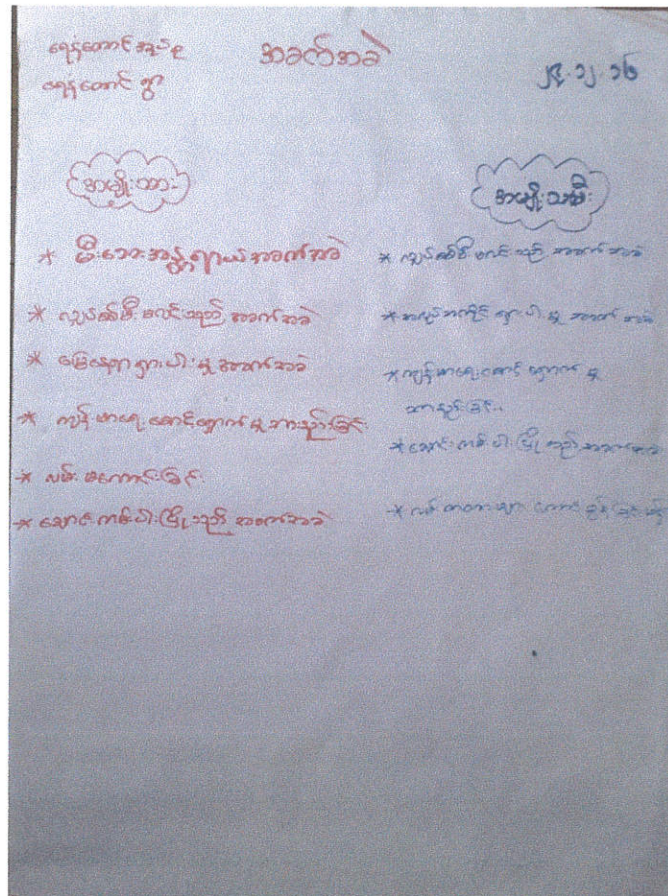 ရေနံတောင် အုပ်စု
ရေနံတောင် ရွာ
အခက်အခဲ
၂၄.၁၂.၁၆
အမျိုးသား
* မီးဘေးအန္တရာယ်အခက်အခဲ
* လျှပ်စစ်မီး မလင်းသည့် အခက်အခဲ
* မြေနေရာ ရှားပါးမှု အခက်အခဲ
* ကျန်းမာရေး စောင့်ရှောက်မှု အားနည်းခြင်း
* လမ်း မကောင်းခြင်း
* ချောင်းကမ်းပါးပြိုသည့် အခက်အခဲ
အမျိုးသမီး
* လျှပ်စစ်မီး မလင်းသည့် အခက်အခဲ
* အလုပ်အကိုင် ရှားပါးမှု အခက်အခဲ
* ကျန်းမာရေးစောင့်ရှောက်မှု
အားနည်းခြင်း
* ချောင်းကမ်းပါးပြိုသည့် အခက်အခဲ
* လမ်း တံတားများ